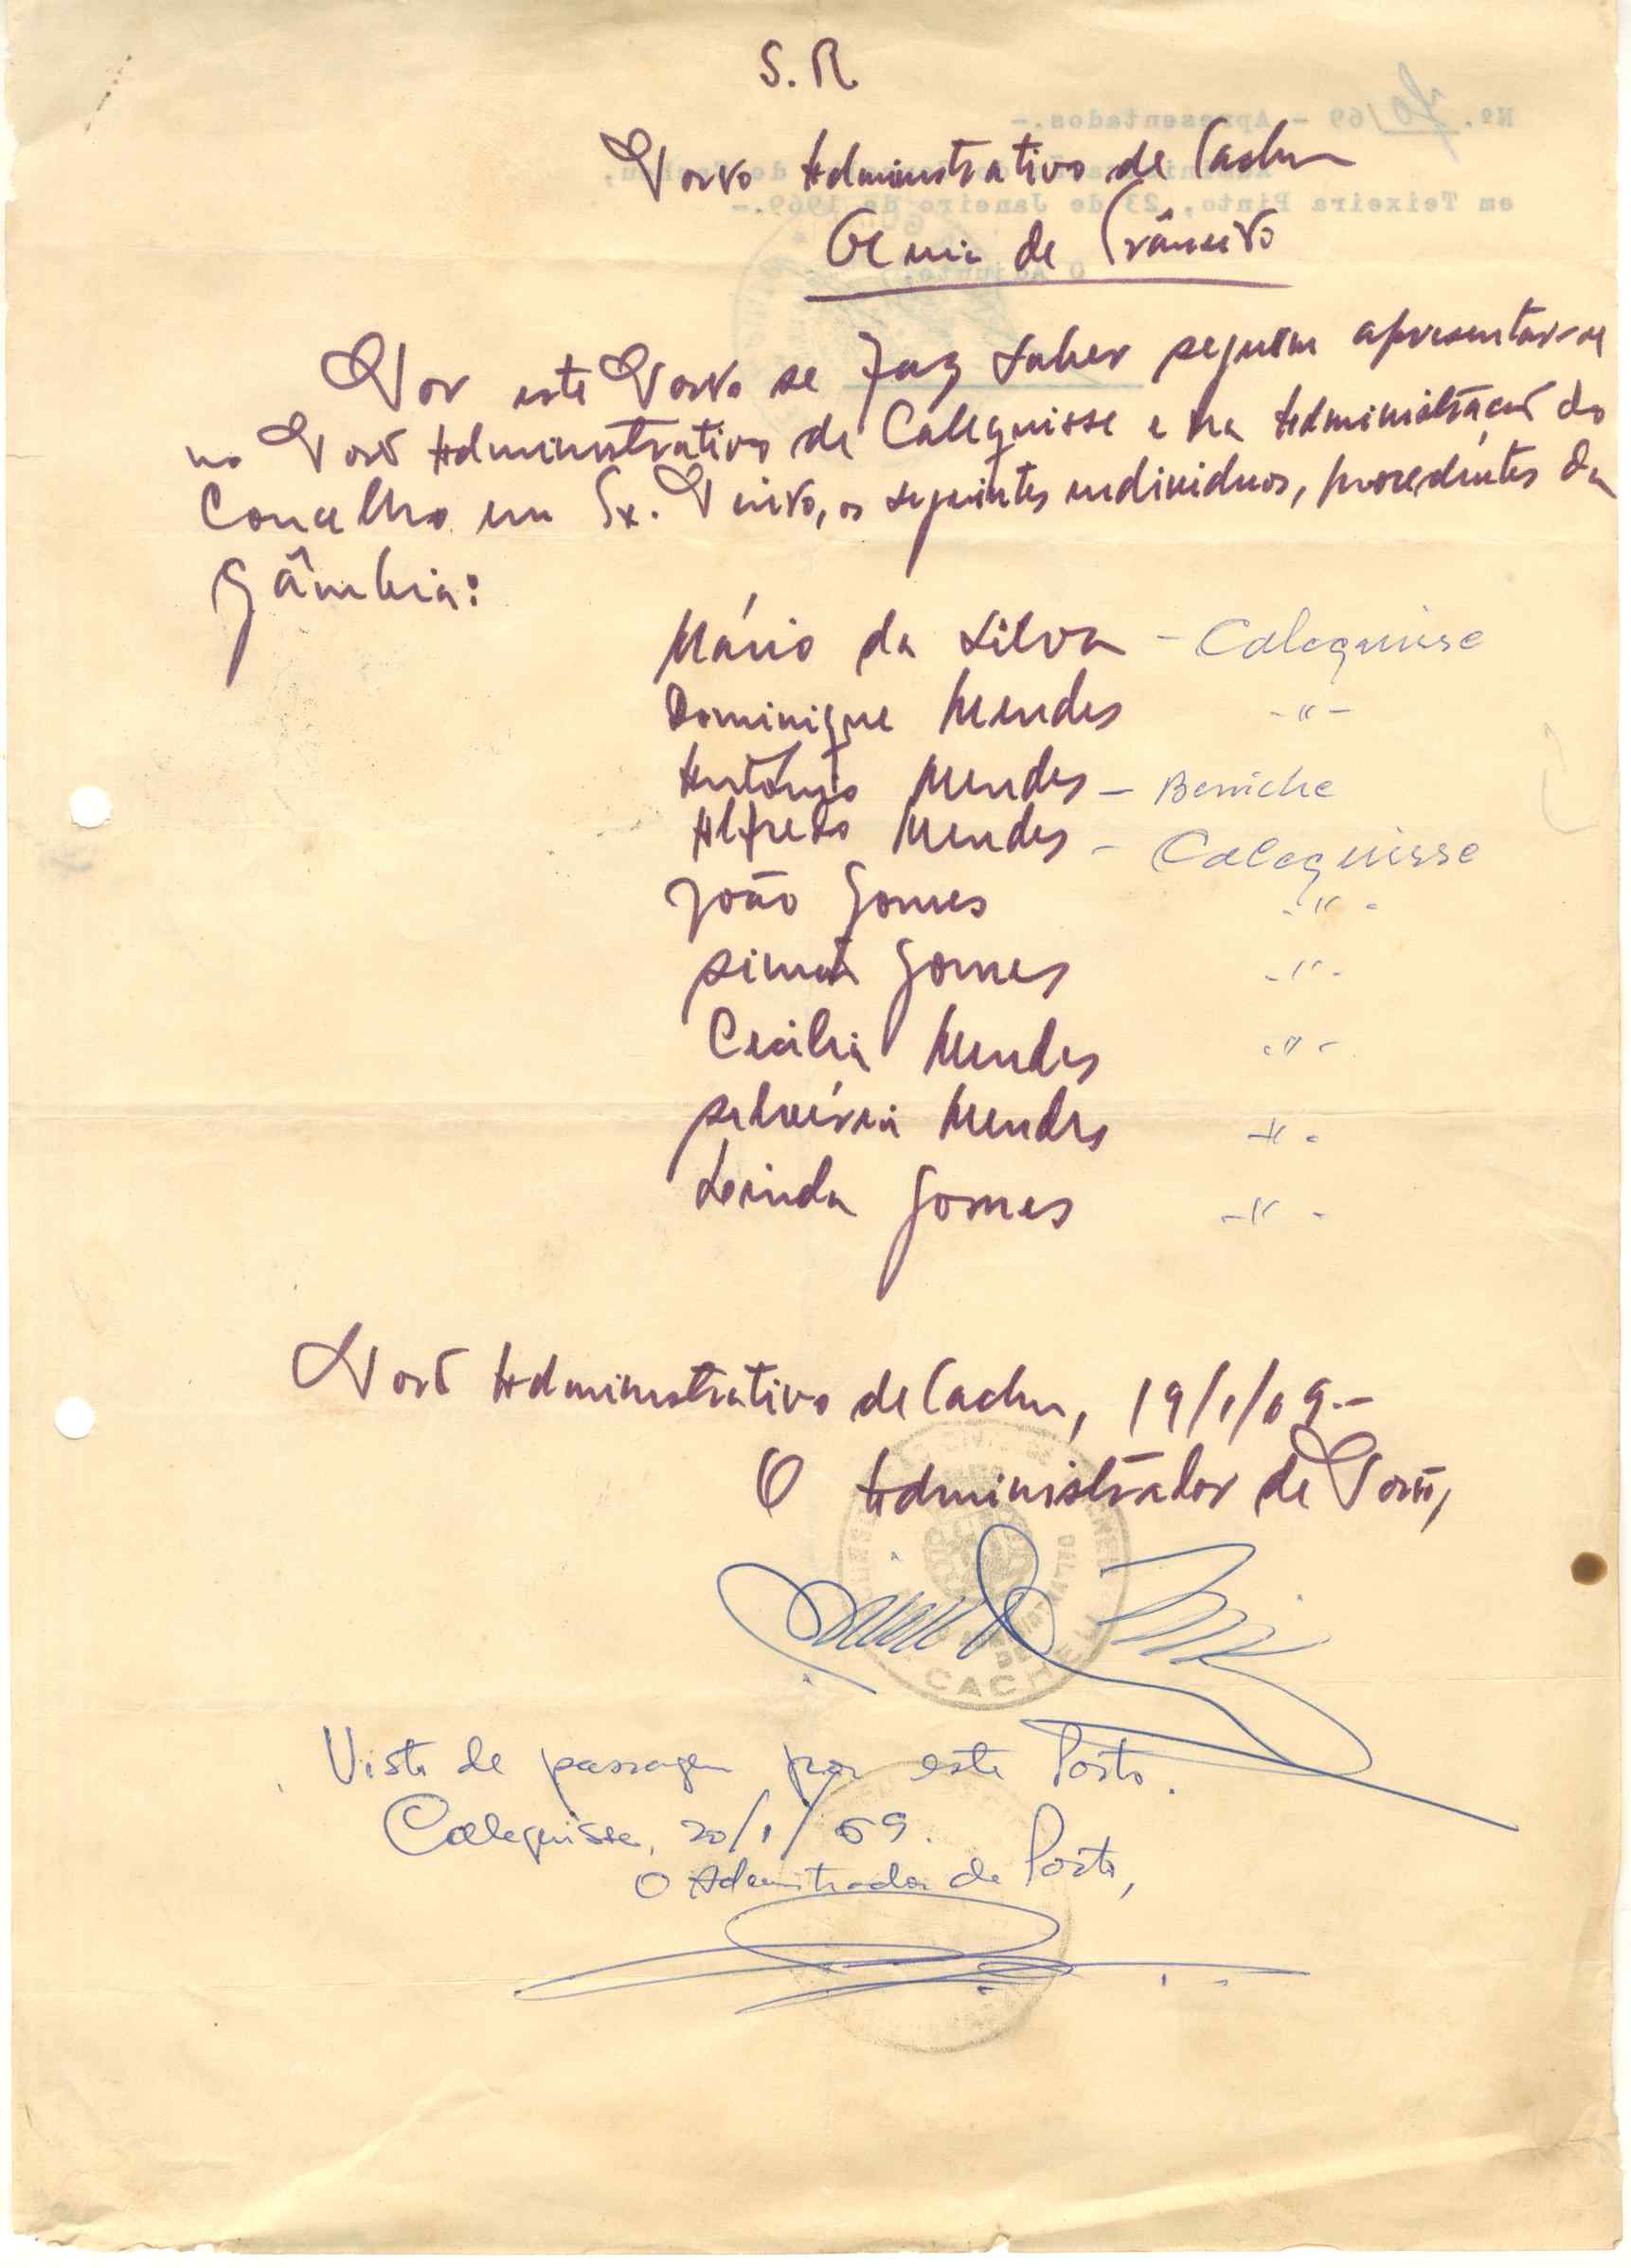 S. R
Posto Administrativo de Cacheu
Guia de Trânsito
Por este Posto se faz saber seguem apresentar-se
no Posto Administrativo de Calequisse e na Administração do
Concelho em Tx. Pinto, os seguintes individuos, procedentes da
Gâmbia:
Mário da Silva - Calequisse
Dominique Mendes -"-
António Mendes - Beniche
Alfredo Mendes - Calequisse
João Gomes -"-
Gomes -"-
Cecilia Mendes -"-
Mendes -"-
Gomes -"-
Posto Administrativo de Cacheu, 19/1/69.-
O Administrador de Posto,
CACHEU
Visto de passagem por este Posto.
Calequisse, 20/1/69.
O Administrador de Posto,
Nº. 70/69 - Apresentados.-
em Teixeira Pinto, 23 de Janeiro de 1969.-
O Adjunto,